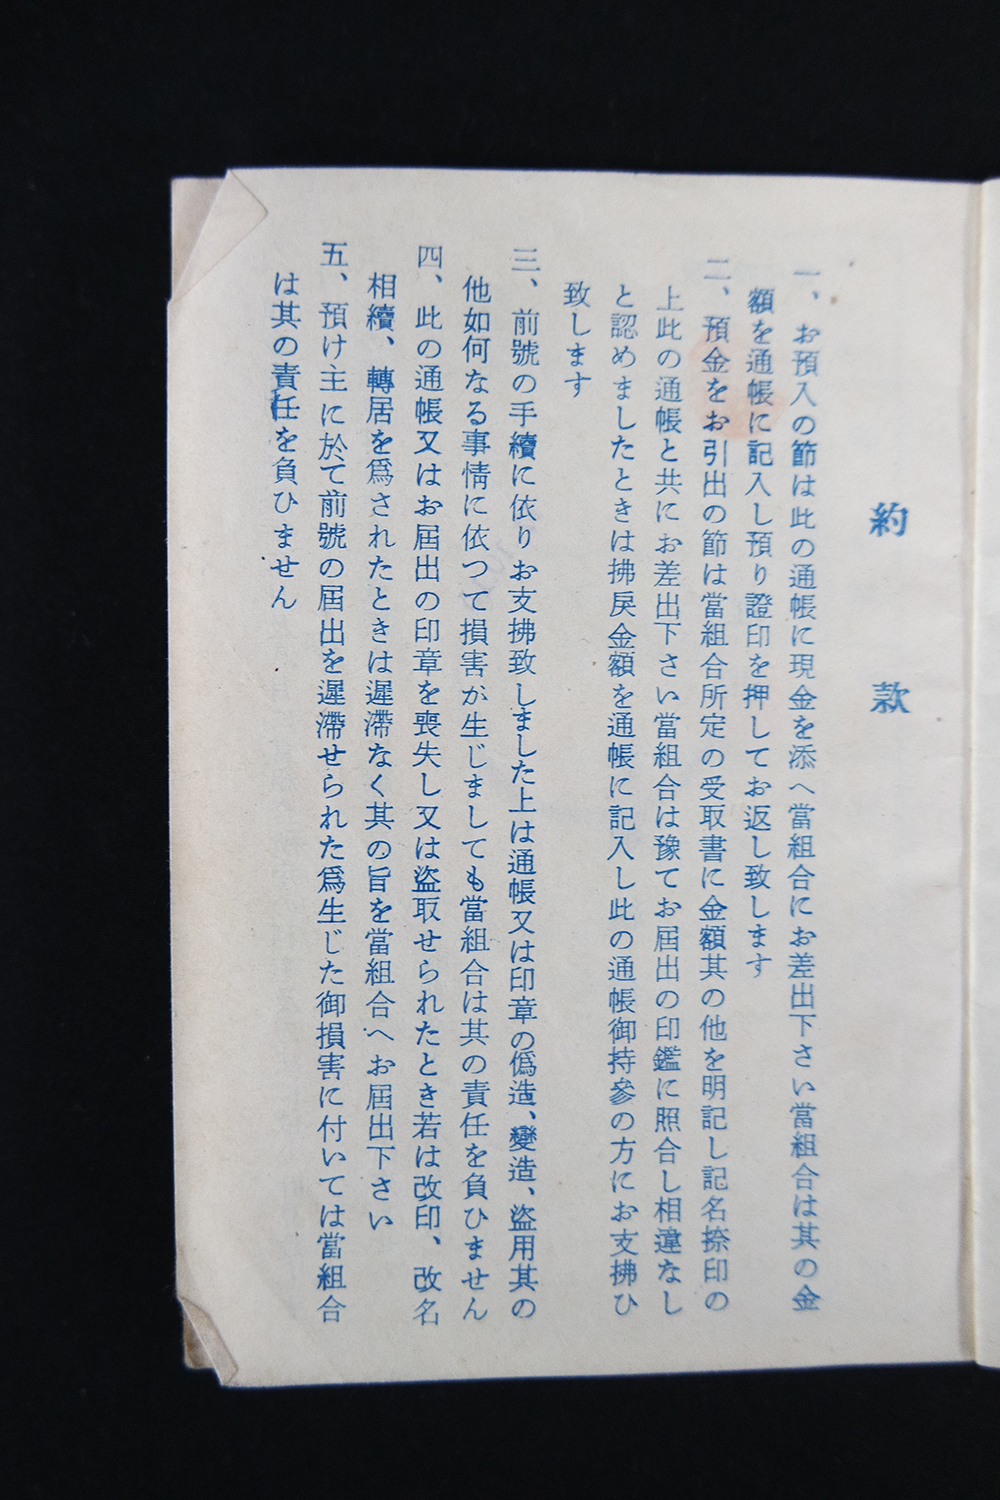 約款
一、お預入の節は此の通帳に現金を添へ當組合にお差出下さい當組合は其の金
額を通帳に記入し預り證印を押してお返し致します
二、預金をお引出の節は當組合所定の受取書に金額其の他を明記し記名捺印の
上此の通帳と共にお差出下さい當組合は豫てお屆出の印鑑に照合し相違なし
と認めましたときは拂戻金額を通帳に記入し此の通帳御持參の方にお支拂ひ
致します
三、前號の手續に依りお支拂致しました上は通帳又は印章の僞造、變造、盜用其の
他如何なる事情に依つて損害が生じましても當組合は其の責任を負ひません
四、此の通帳又はお屆出の印章を喪失し又は盜取せられたとき若は改印、改名
相續、轉居を爲されたときは遲滯なく其の旨を當組合へお屆出下さい
五、預け主に於て前號の屆出を遲滯せられた爲生じた御損害に付いては當組合
は其の責任を負ひません